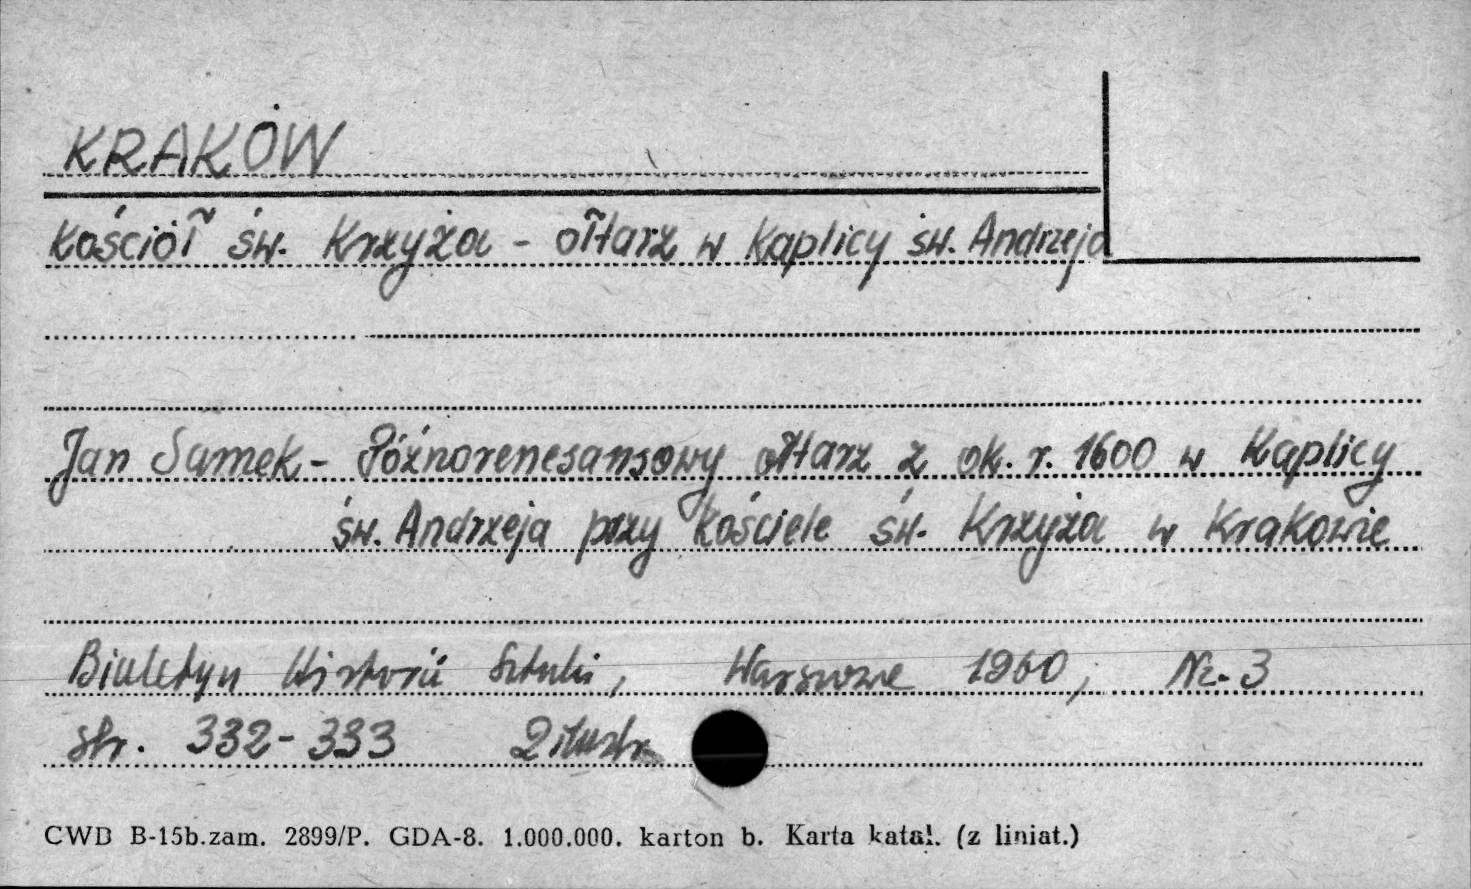 KRAKÓW
Kościół św. Krzyża - ołtarz w Kaplicy św. Andrzeja
Jan Samek - Późnorenesansowy ołtarz z ok. r. 1600 w Kaplicy
św. Andrzeja przy Kościele św. Krzyża w Krakowie
Biuletyn Historii Sztuki, Warszawa 1960, Nr. 3
str. 332-333 2 ilustr.
CWD B-15b.zam. 2899/P. GDA-8. 1.000.000. karton b. Karta katal. (z liniat.)